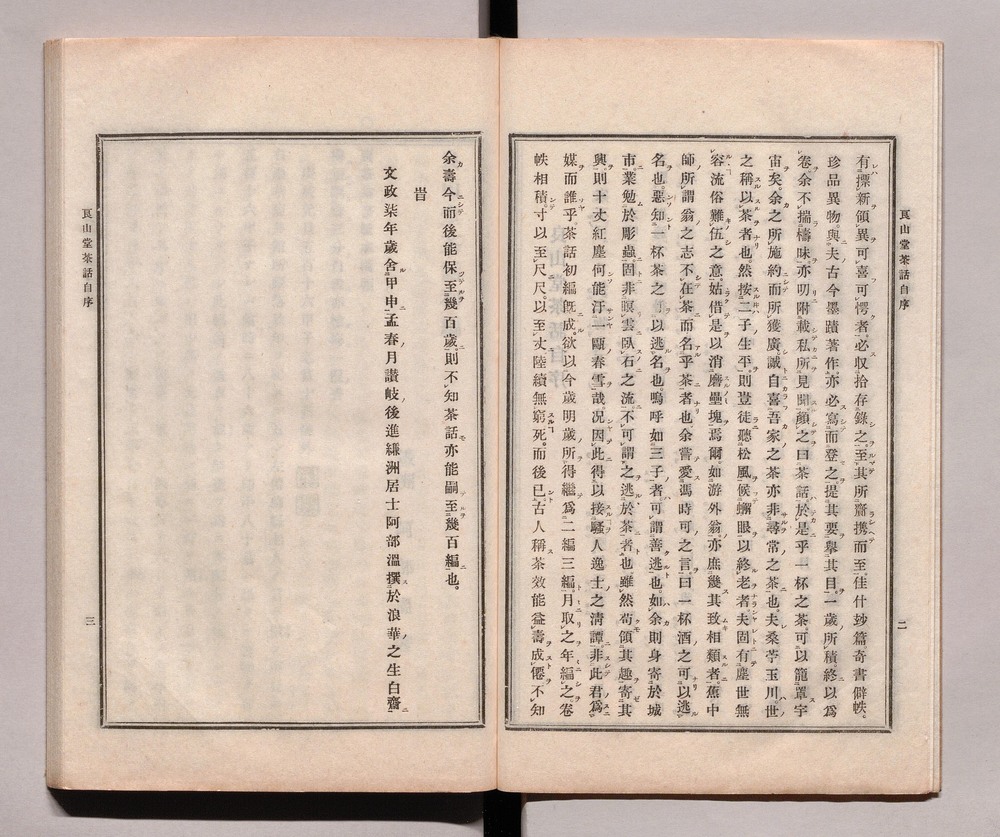 有標新領異可喜可愕者、必収拾存錄之、至其所齎携而至、佳什妙篇奇書僻帙、
珍品異物、與夫古今墨蹟著作、亦必寫而登之、提其要擧其目、一歲所積、終以爲
卷、余不揣檮昧、亦叨附載私所見聞、顏之曰茶話、於是乎一杯之茶、可以籠罩宇
宙矣、余之所施約而所獲廣、誠自喜吾家之茶、亦非尋常之茶也、夫桑苧玉川、世
之稱以茶者也、然按二子生平、則豈徒聽松風候蠏眼以終老者、夫固有塵世無
容流俗難伍之意、姑借是以消磨壘塊焉爾、如游外翁、亦庶幾其致相類者、蕉中
師所謂翁之志不在茶、而名乎茶者也、余嘗愛馮時可之言、曰一杯酒之可以逃
名也、惡知一杯茶之可以逃名也、嗚呼如三子者、可謂善逃也、如余則身寄於城
市、業勉於彫蟲、固非暝雲臥石之流、不可謂之逃於茶者也、雖然苟領其趣寄其
興、則十丈紅塵何能汙一甌春雪哉、况因此得以接騷人逸士之淸譚、非此君爲
媒而誰乎、茶話初編旣成、欲以今歲明歲所得、繼爲二編三編、月取之年編之、卷
帙相積、寸以至尺、尺以至丈、陸續無窮、死而後已、古人稱茶效能益壽成僊、不知
余壽今而後能保至幾百歲、則不知茶話亦能嗣至幾百編也。
旹
文政柒年歲舍甲申孟春月讃岐後進縑洲居士阿部溫撰於浪華之生白齋
良山堂茶話自序
二
良山堂茶話自序
三